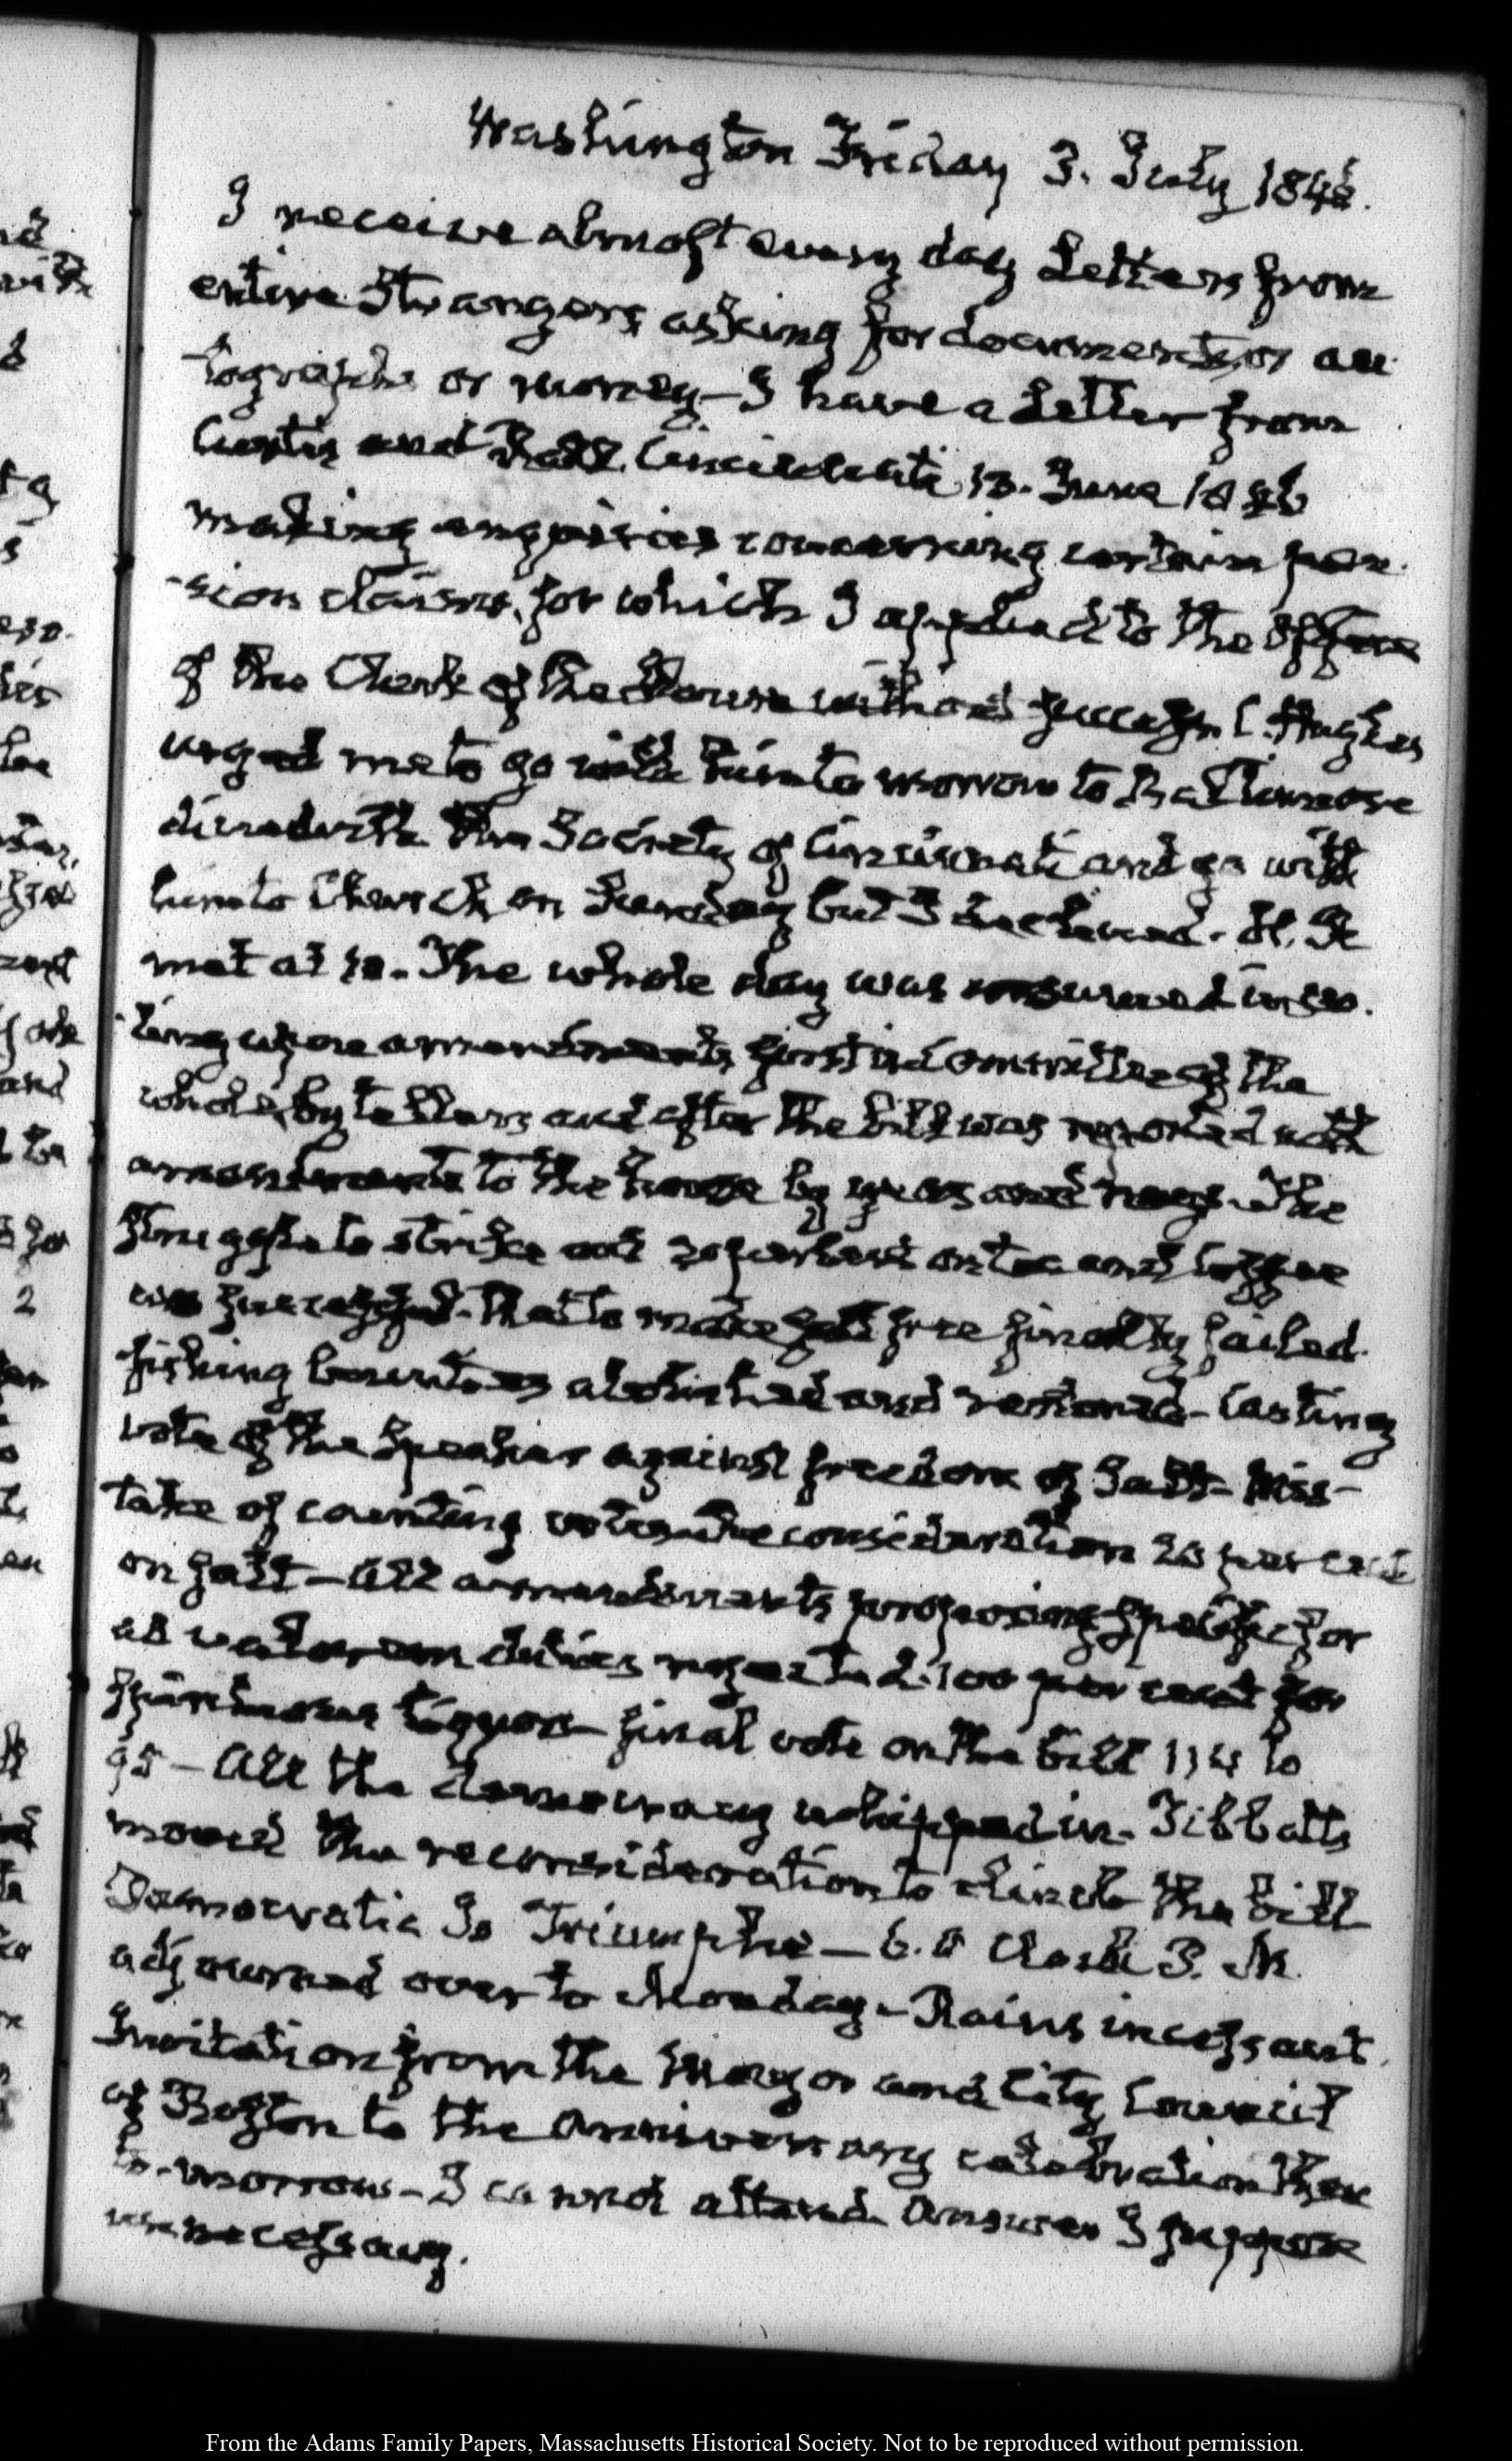 Washington Friday 3. July 1846.
I receive almost every day Letters from
entire Strangers asking for documents, or au-
-tographs or money — I have a Letter from
Curtis and Cincinnati 13. June 1846
making enquiries concerning certain pen-
-sion claims, for which I applied to the Office
of the Clerk of the House without success. C. Hughes
urged me to go with him to morrow to Baltimore
dine with the Society of Cincinnati and go with
him to Church on Sunday but I declined. H. R.
met at 10. The whole day was consumed in vo-
-ting upon amendments first in Committee of the
whole, by tellers and after the bill was reported with
amendments to the house by yeas and nays. The
struggle to strike out 20 per cent on tea and coffee
was successful. That to make salt free finally failed.
fishing bounties abolished and restored. Casting
vote of the Speaker against freedom of Salt. Mis-
take of counting votes. Reconsideration 20 per cent
on salt — All amendments proposing specific for
ad valorem duties rejected. 100 per cent for
spirituous liquors — final vote on the bill 114 to
95 — All the democracy whipped in. Tibbatts
moved the reconsideration to clinch the bill
Democratic Io Triumphe — 6.0 Clock P. M.
adjourned over to Monday — Rains incessant.
Invitation from the Mayor and City Council
of Boston to the Anniversary celebration there
to-morrow — I cannot attend. Answer I suppose
unnecessary.
From the Adams Family Papers, Massachusetts Historical Society. Not to be reproduced without permission.